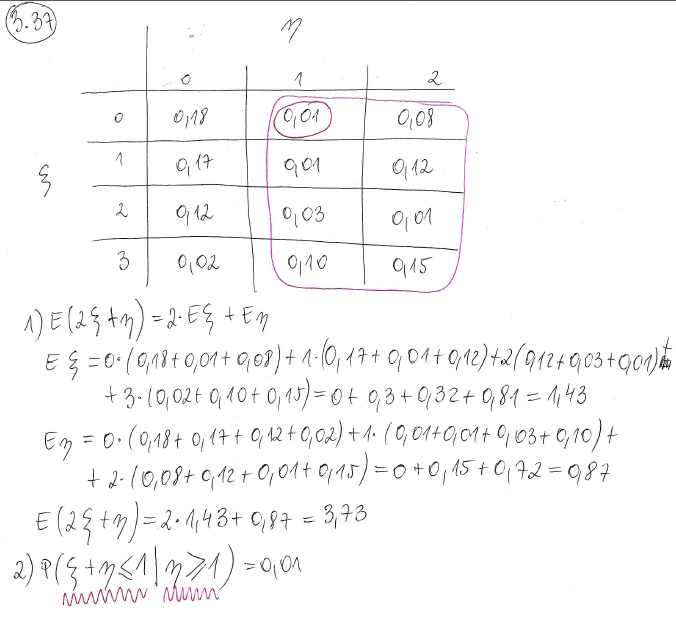 3.37
η
0 1 2
0 0,18 0,01 0,08
ξ
1 0,17 0,01 0,12
2 0,12 0,03 0,01
3 0,02 0,10 0,15
1) E(2ξ+η) = 2·Eξ + Eη
Eξ = 0·(0,18+0,01+0,08)+1·(0,17+0,01+0,12)+2(0,12+0,03+0,01)+
+3·(0,02+0,10+0,15)=0+0,3+0,32+0,81=1,43
Eη = 0·(0,18+0,17+0,12+0,02)+1·(0,01+0,01+0,03+0,10)+
+2·(0,08+0,12+0,01+0,15)=0+0,15+0,72=0,87
E(2ξ+η)=2·1,43+0,87=3,73
2) P(ξ+η≤1|η≥1)=0,01